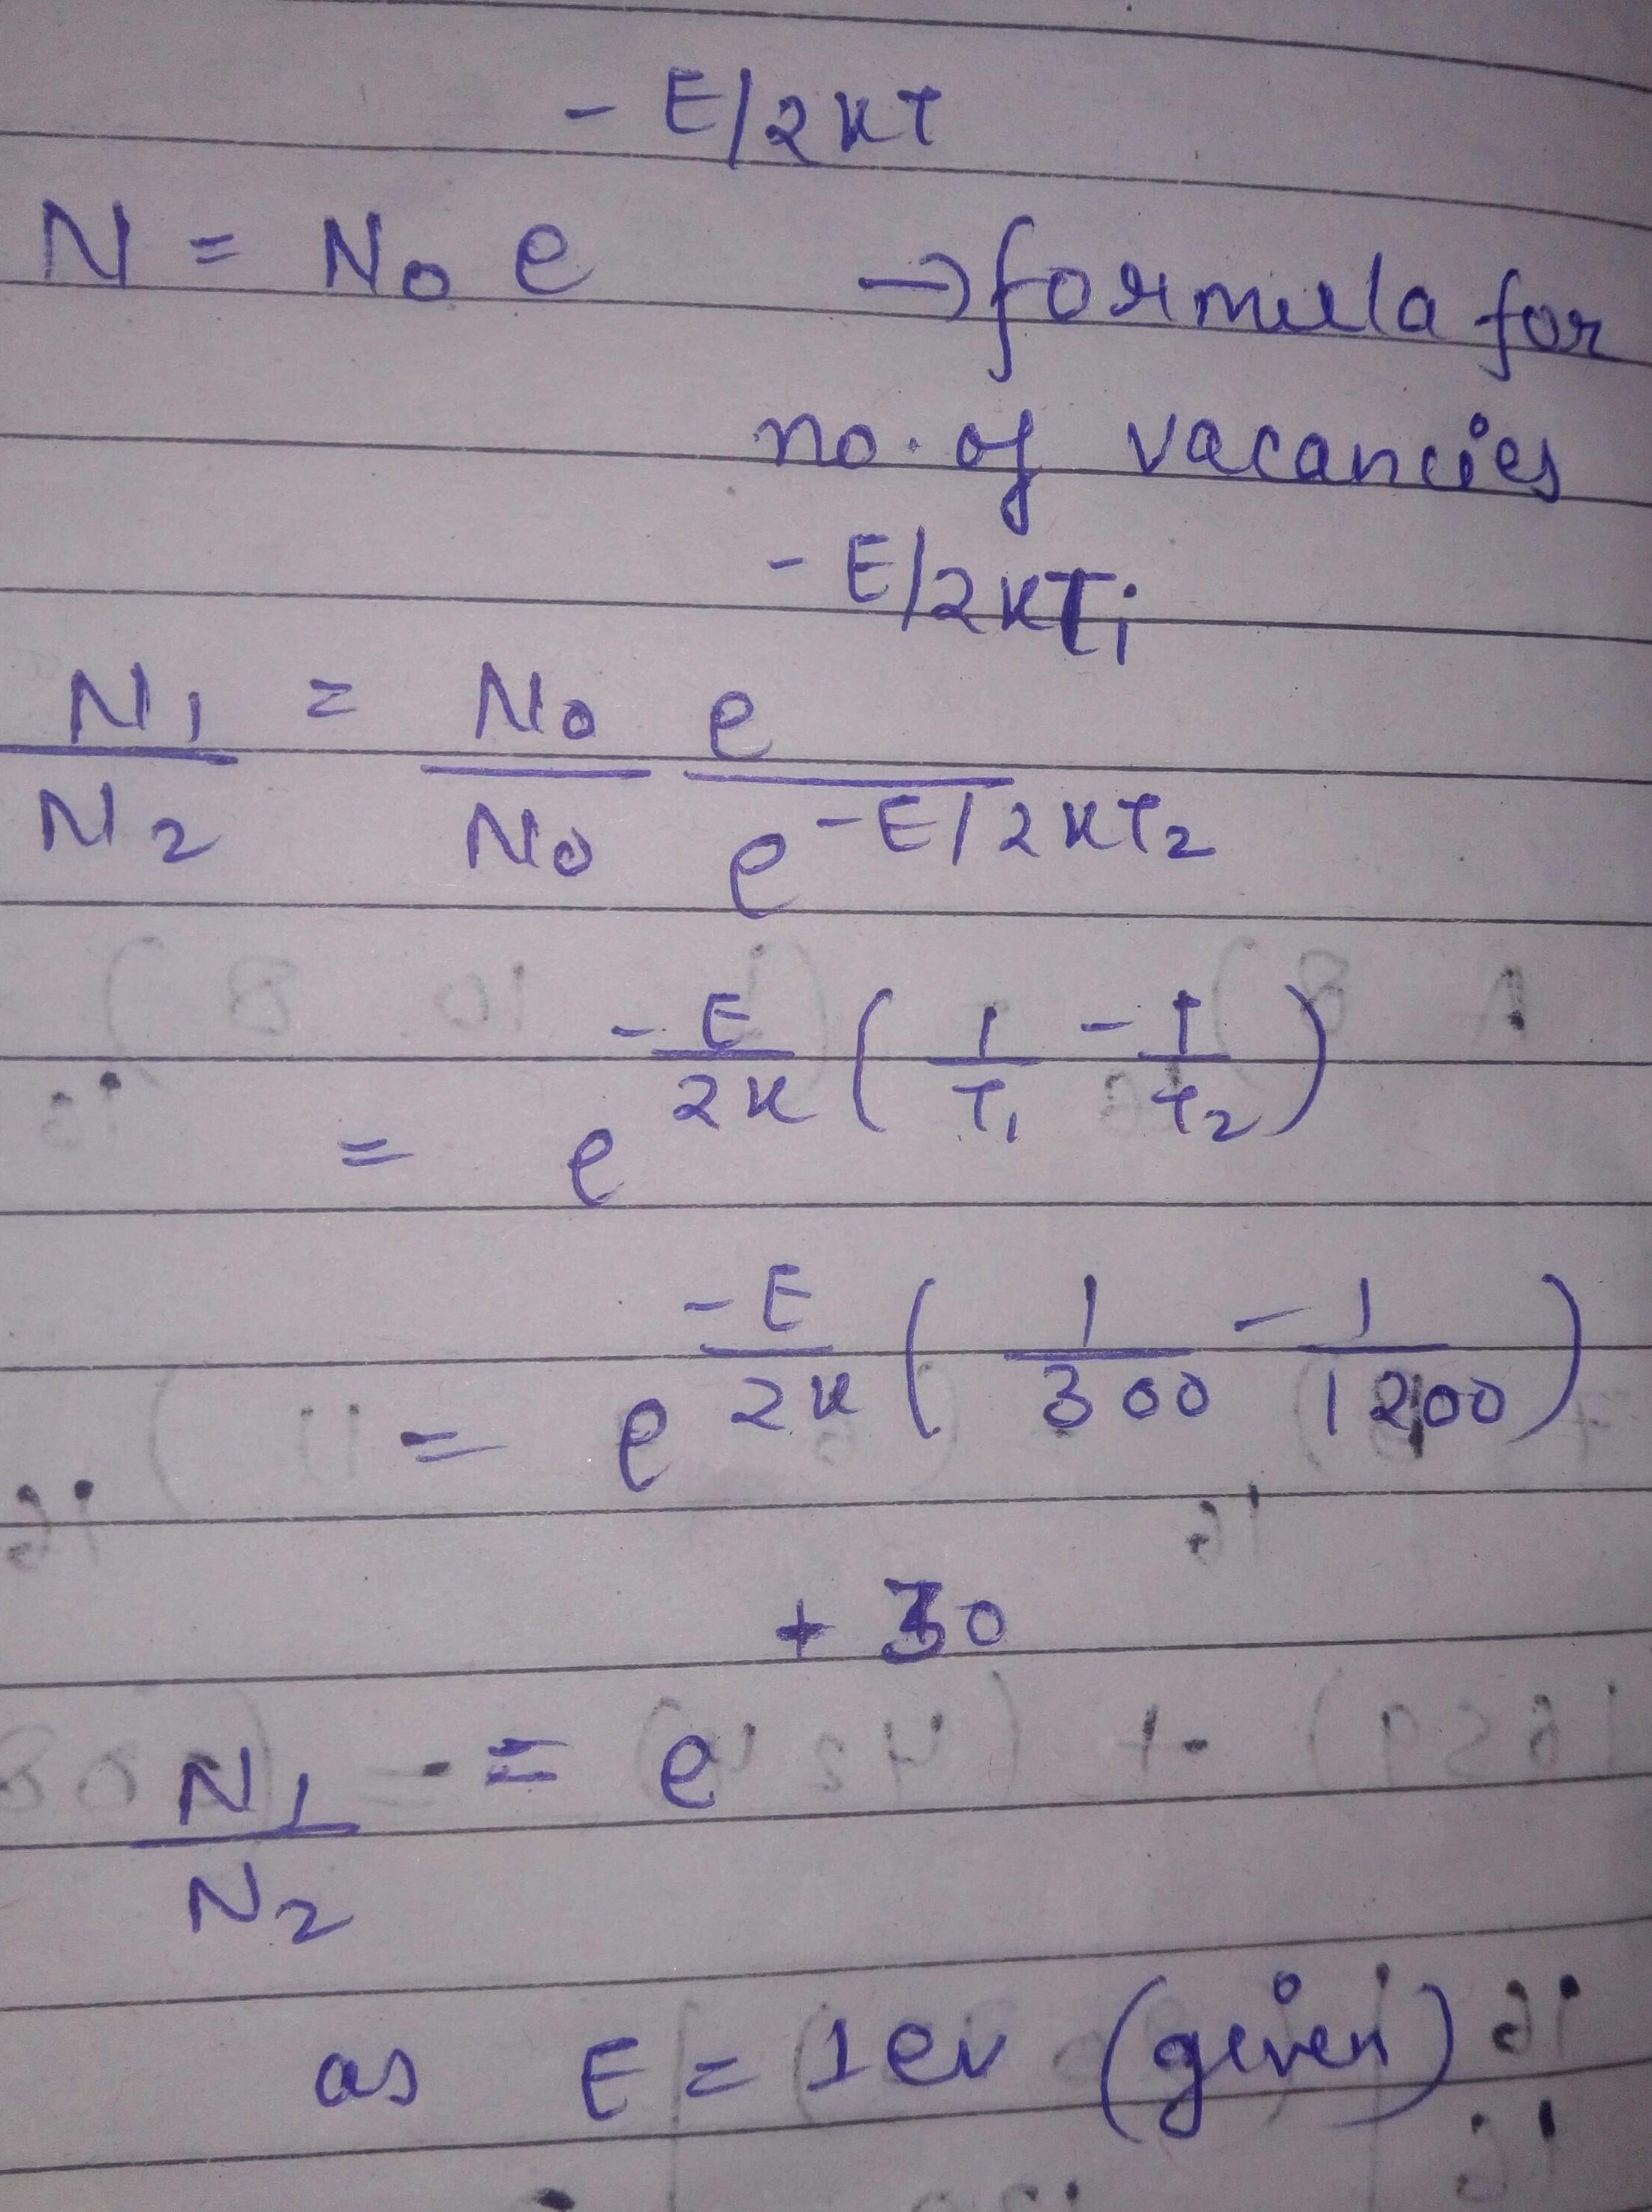 N = N₀ e^(-E/2KT) → formula for
no. of vacancies
N₁/N₂ = N₀/N₀ e^(-E/2KT₁)/e^(-E/2KT₂)
= e^(-E/2K (1/T₁ - 1/T₂))
= e^(-E/2K (1/300 - 1/1200))
N₁/N₂ = e^(+30)
as E = 1ev (given)